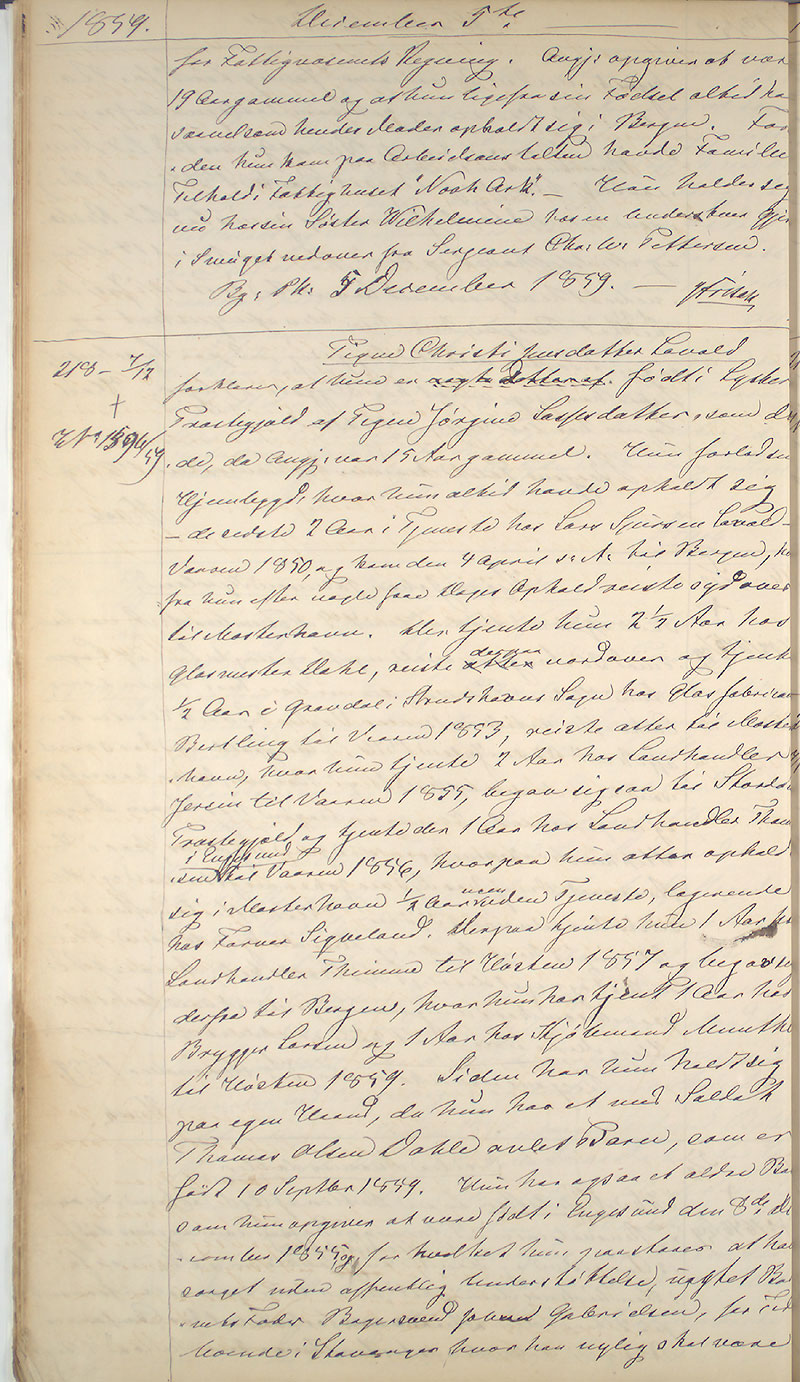 1859. December 5te
for Fattigvæsenets Regning. Angj: opgiver at vær
19 Aar gammel og at hun ligefra sin Fødsel altid ha
saavelsom hendes Moder opholdt sig i Bergen. For
-den hun kom paa Arbeidsanstalten havde Familie
Tilhold i Fattighuset "Noah Ark". — Hun holder sig
nu hos sin Søster Wilhelmine hos en Underskoer
i Smuget nedover fra Sergeant Chr. W. Pettersen.
By: Ph: 5 December 1859. —
218 – 7/12 Pigen Christi Jensdatter Lavold
forklarer, at hun er ægte Datter af født i Lysters
Præstegjæld af Pigen Jørgine Lassesdatter, som dø
-de, da Angj: var 15 Aar gammel. Hun forlod sin
Hjembygd, hvor hun altid havde opholdt sig
– de sidste 2 Aar i Tjeneste hos Lars Sjursen Lavold –
Vaaren 1850, og kom den 4 April s: A: til Bergen, hv
fra hun efter nogle faae Dages Ophold reiste sydover
til Mosterhavn. Der tjente hun 2 1/2 Aar hos
Glasmester Dahl, reiste derpaa nordover og tjente
1/2 Aar i Gravdal i Strudshavns Sogn hos Glasfabrican
Bertling til Vaaren 1853, reiste atter til Moster
-havn, hvor hun tjente 2 Aar hos Landhandler
Jersin til Vaaren 1855, begav sig saa til Stordøe
Præstegjæld og tjente der 1 Aar hos Landhandler Thom
i Engesund
-sen til Vaaren 1856, hvorpaa hun atter ophold
sig i Mosterhavn 1/2 Aar uden Tjeneste, logerende
hos Farver Sigveland. Derpaa tjente hun 1 Aar hos
Landhandler Thimme til Høsten 1857 og begav sig
derfra til Bergen, hvor hun har tjent 1 Aar hos
Brygger Larsen og 1 Aar hos Kjøbmand Munthe
til Høsten 1859. Siden har hun holdt sig
paa egen Haand, da hun har et med Soldat
Thomas Olsen Dahle avlet Barn, som er
født 10 Septbr 1859. Hun har ogsaa et ældre Ba
som hun opgiver at være født i Engesund den 8de De
-cember 1855, og for hvilket hun paastaaer at ha
sørget uden offentlig Understøttelse, uagtet Ba
-nets Fader Bagersvend Johan Gabrielsen, for Tid
boende i Stavanger hvor han nylig skal være